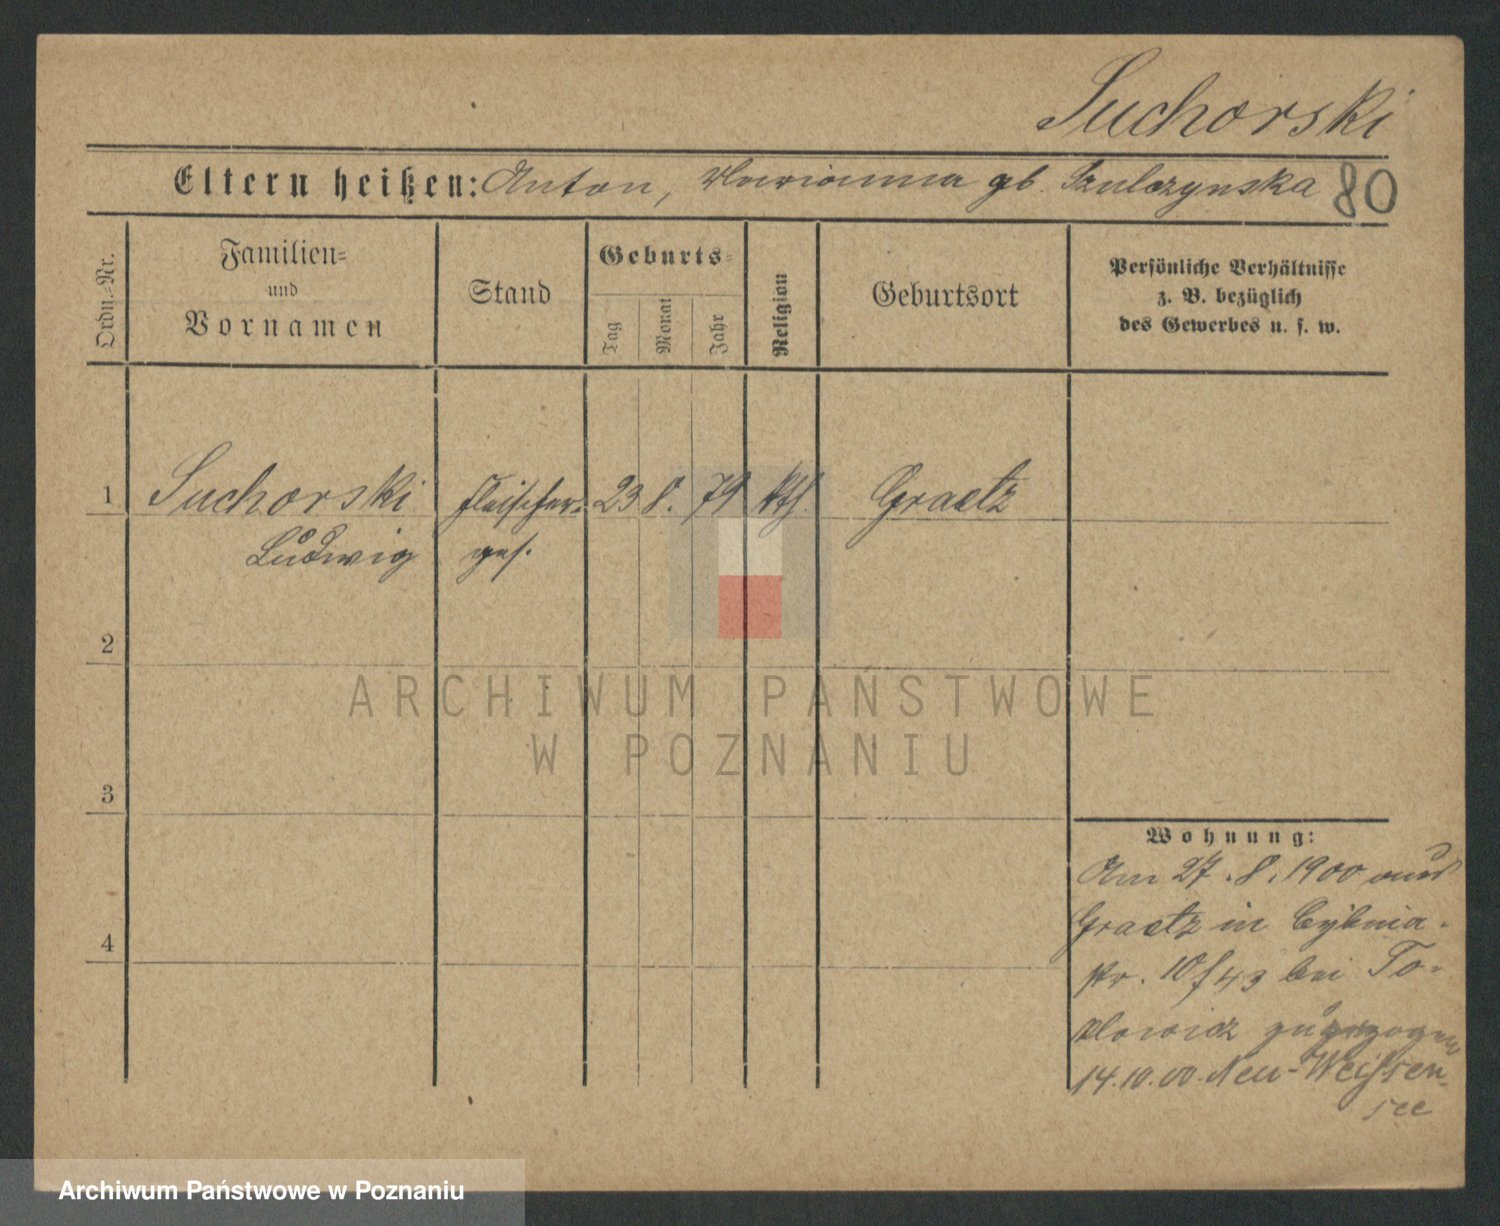 Suchorski
Eltern heißen: Anton, Marianna gb. Szulczynska 80
Ordn.-Nr.
Familien-
und
Vornamen
Stand
Geburts-
Tag
Monat
Jahr
Religion
Geburtsort
Persönliche Verhältnisse
z. B. bezüglich
des Gewerbes u. s. w.
1 Suchorski Fleischer- 23 8. 79 kth. Graetz
Ludwig ges.
2
ARCHIWUM PAŃSTWOWE
W POZNANIU
3
Wohnung:
Am 27. 8. 1900 aus
Graetz in Cybina-
str. 10 bei
zugezogen
4
14.10.00. Neu-Weißen-
see
Archiwum Państwowe w Poznaniu